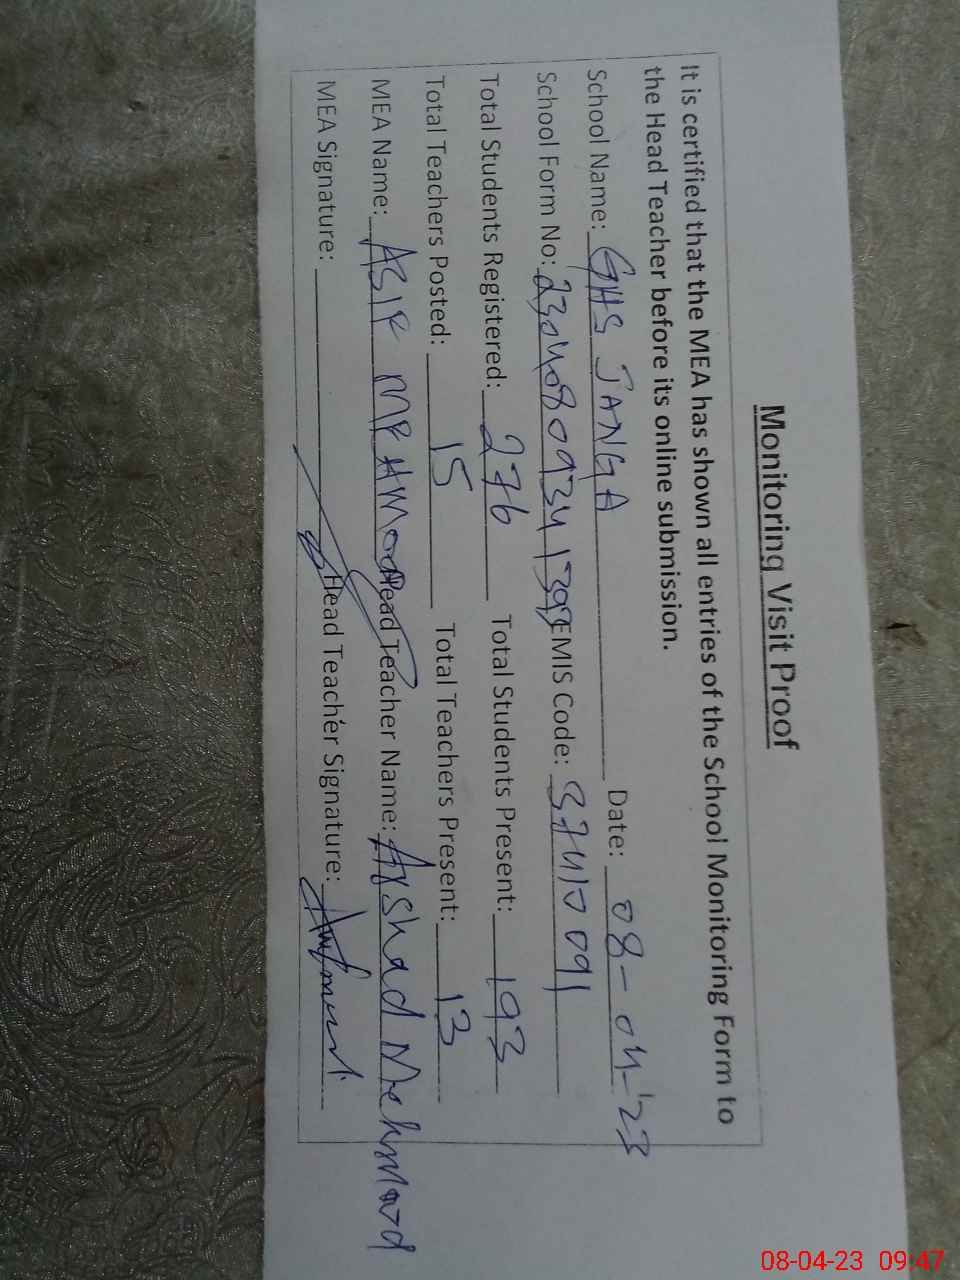 Monitoring Visit Proof
It is certified that the MEA has shown all entries of the School Monitoring Form to
the Head Teacher before its online submission.
School Name: GHS JANGA Date: 08-04-'23
School Form No: EMIS Code: 37410091
Total Students Registered: 276 Total Students Present: 193
Total Teachers Posted: 15 Total Teachers Present: 13
MEA Name: ASIF MEHMOOD Head Teacher Name: Arshad Mehmood
MEA Signature: Head Teacher Signature:
08-04-23 09:47